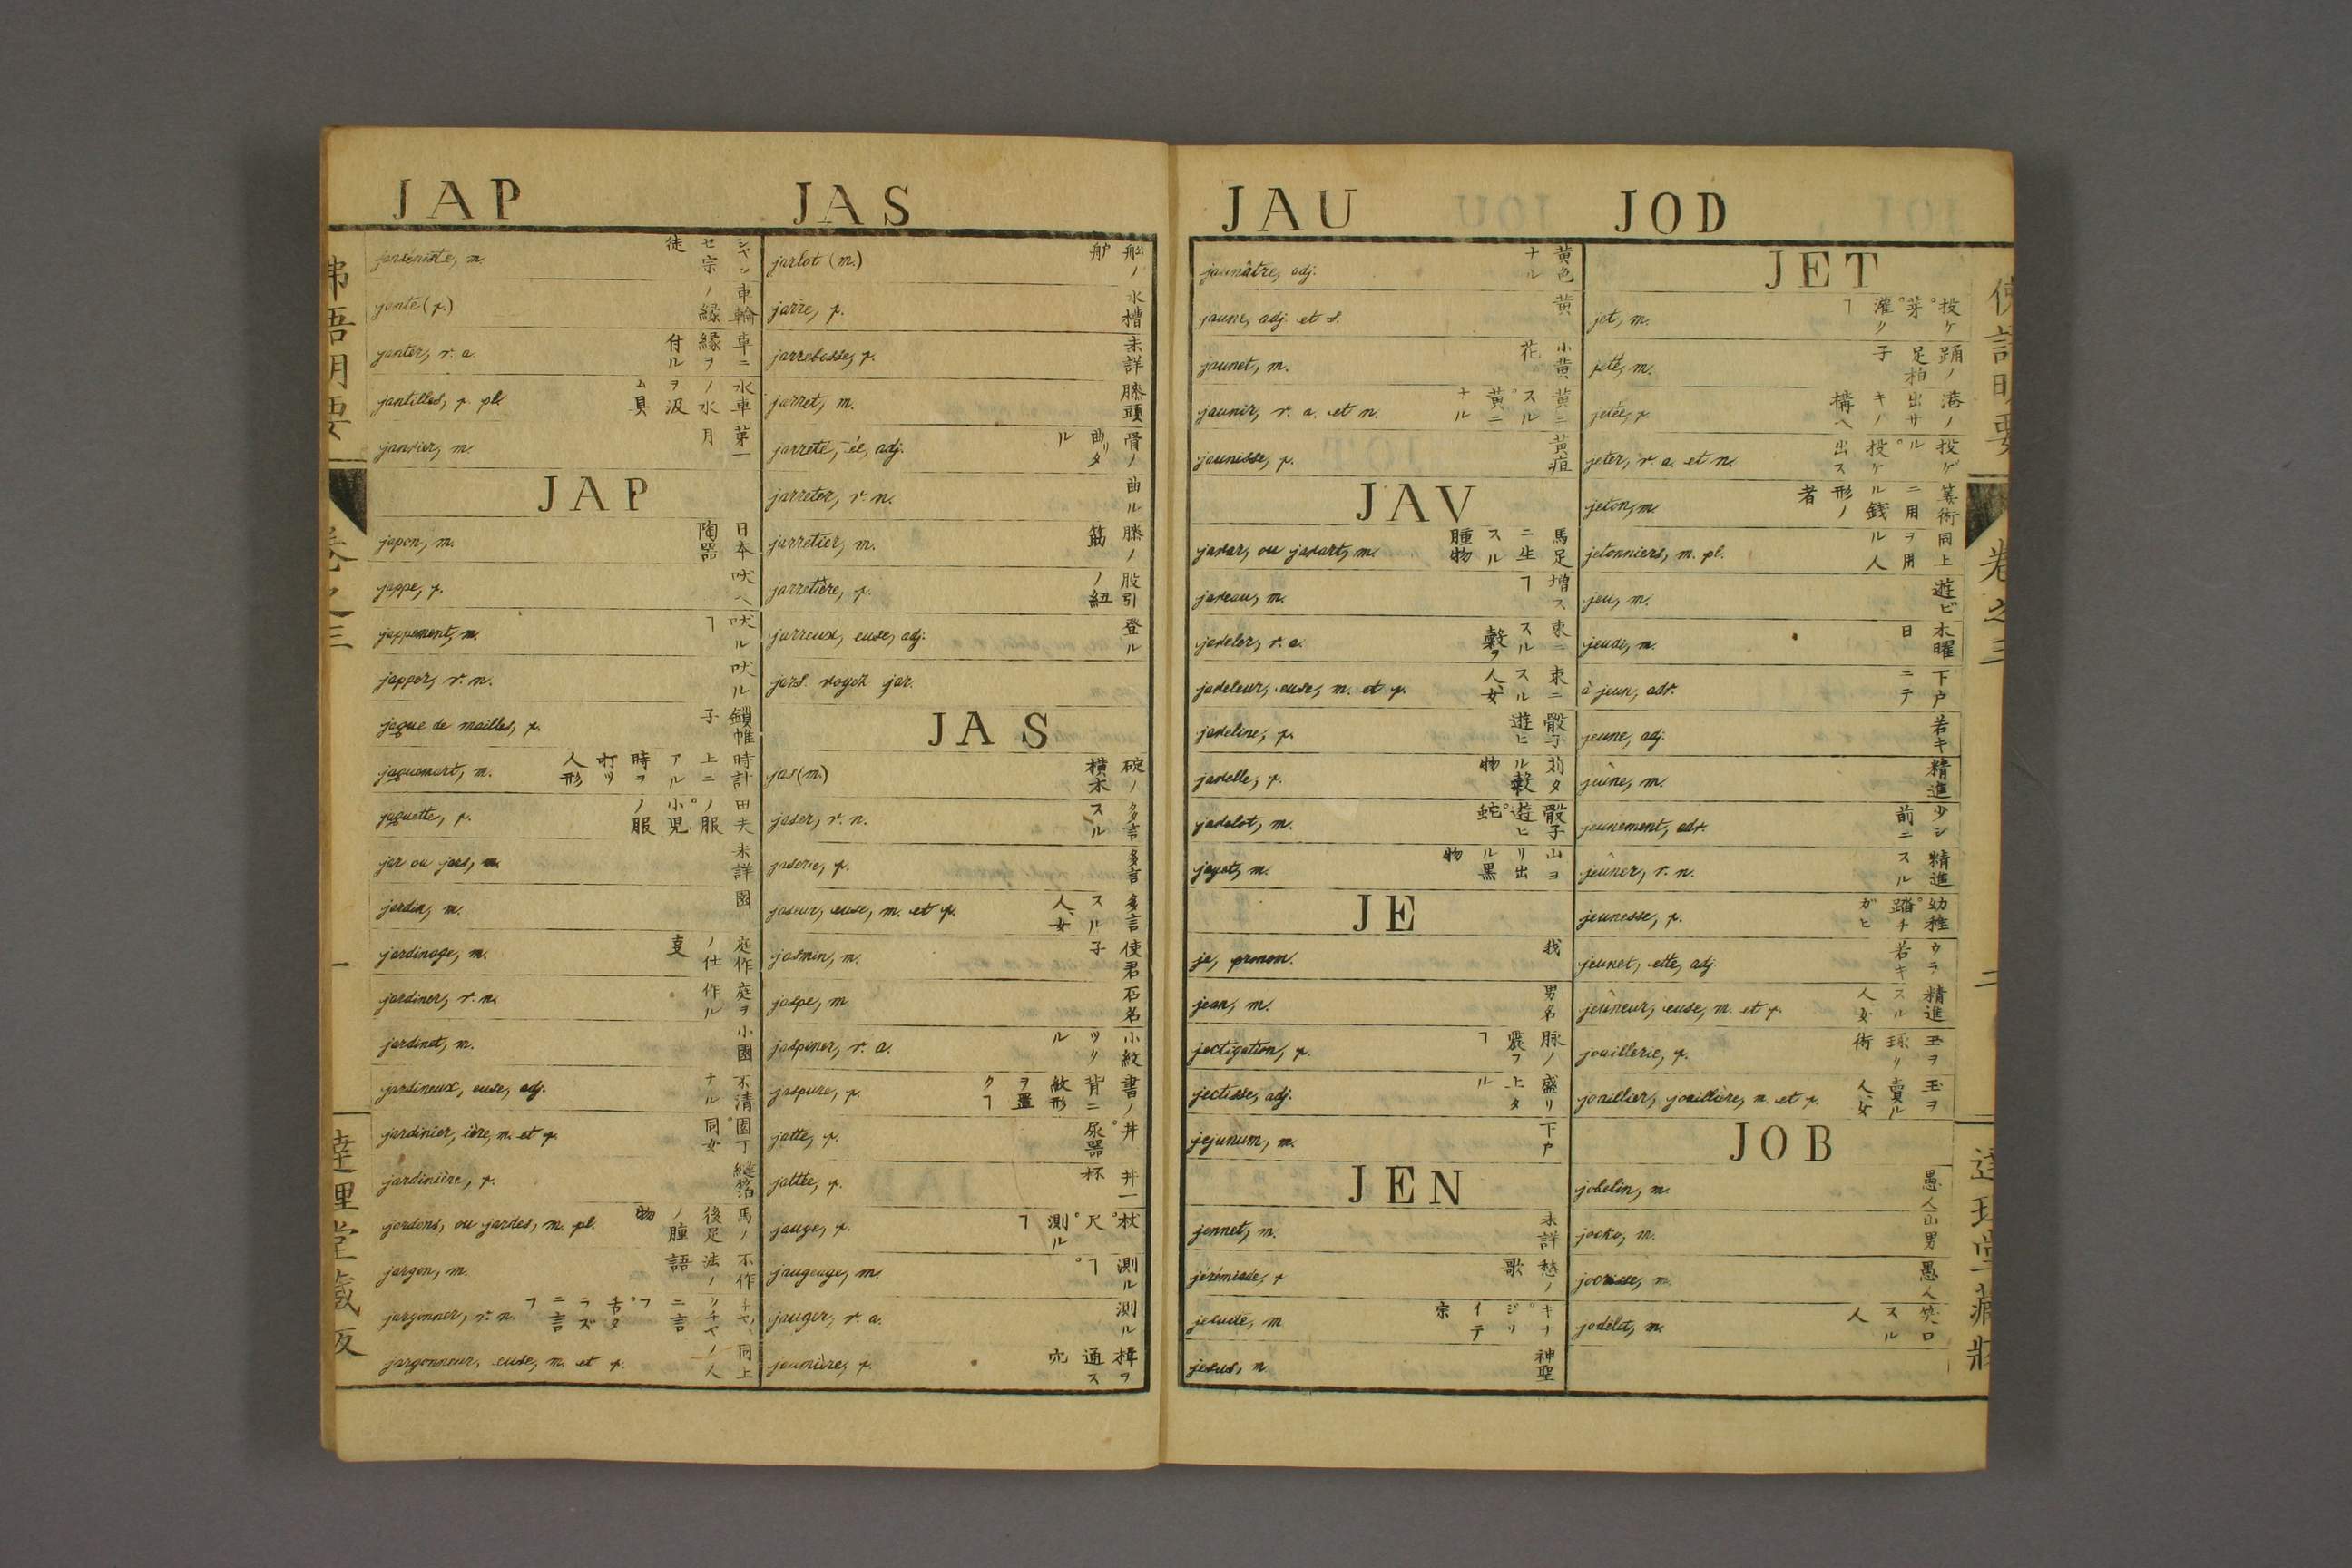 JAP
JAS
janséniste, m. シャンセ宗ノ徒
jante (f.) 車輪ノ縁
janter, v. a. 車ニ縁ヲ付ル
jantilles, f. pl. 水車ノ水ヲ汲ム具
janvier, m. 第一月
JAP
japon, m. 日本陶器
jappe, f. 吠ヘ
jappement, m. 吠ルヿ
japper, v. n. 吠ル
jaque de mailles, f. 鎖帷子
jaquemart, m. 時計上ニアル時ヲ打ツ人形
jaquette, f. 田夫ノ服。小児ノ服
jar ou jars, m. 未詳
jardin, m. 園
jardinage, m. 庭作ノ仕㕝
jardiner, v. n. 庭ヲ作ル
jardinet, m. 小園
jardineux, euse, adj. 不清ナル
jardinier, ière, m. et f. 園丁。同女
jardinière, f. 縫箔
jardons, ou jardes, m. pl. 馬ノ後足ノ腫物
jargon, m. 不作法ノ語
jargonner, v. n.
jargonneur, euse, m. et f. 同上ノ人
jarlot (m.) 舩ノ
jarre, f. 水槽
jarrebosse, f. 未詳
jarret, m. 膝頭
jarreté, -ée, adj. 骨ノ曲リタル
jarreter, v. n. 曲ル
jarretier, m. 膝ノ筋
jarretière, f. 股引ノ紐
jarreux, euse, adj. 登ル
jars. voyez jar.
JAS
jas (m.) 碇ノ横木
jaser, v. n. 多言スル
jaserie, f. 多言
jaseur, euse, m. et f. 多言スル人、女
jasmin, m. 使君子
jaspe, m. 石名
jaspiner, v. a.
jaspure, f. 書ノ背ニ紋形ヲ置クヿ
jatte, f. 丼。尿器
jattée, f. 丼一杯
jauge, f. 杖。尺。測ルヿ
jaugeage, m. 測ルヿ。
jauger, v. a. 測ル
jaumière, f. 楫ヲ通ス穴
JAU
JOD
jaunâtre, adj. 黄色ナル
jaune, adj. et s. 黄
jaunet, m. 小黄花
jaunir, v. a. et n. 黄ニスル。黄ニナル
jaunisse, f. 黄疸
JAV
javar, ou javart, m. 馬足ニ生スル腫物
javeau, m. 増スヿ
javeler, v. a. 束ニスル穀ヲ
javeleur, euse, m. et f. 束ニスル人、女
javeline, f. 骰子遊ヒ
javelle, f. 苅タル穀物
javelot, m. 骰子遊ヒ。蛇
jayet, m. 山ヨリ出ル黒物
JE
je, pronom. 我
jean, m. 男名
jectigation, f. 脉ノ震フヿ
jectisse, adj. 盛リ上タル
jejunum, m. 下戸
JEN
jennet, m. 未詳
jérémiade, f. 愁ノ歌
jesuite, m
jesus, m. 神聖
JET
jet, m. 投ケ。芽。灌クヿ
jeté, m. 踊ノ足拍子
jetée, f. 港ノ出サキノ構ヘ
jeter, v. a. et n. 投ゲル。投ケ出ス
jeton, m. 筭術ニ用ル銭形ノ者
jetonniers, m. pl. 同上ヲ用ル人
jeu, m. 遊ビ
jeudi, m. 木曜日
à jeun, adv. 下戸ニテ
jeune, adj. 若キ
jeûne, m. 精進
jeunement, adv. 少シ前ニ
jeûner, v. n. 精進スル
jeunesse, f. 幼稚。踏チガヒ
jeunet, ette, adj. ウラ若キ
jeûneur, euse, m. et f. 精進スル人、女
joaillerie, f. 玉ヲ琢リ術
joaillier, joaillière, m. et f. 玉ヲ賣ル人、女
JOB
jobelin, m. 愚人
jocko, m. 山男
jocrisse, m. 愚人
jodelet, m. 笑口スル人
卷之三
二